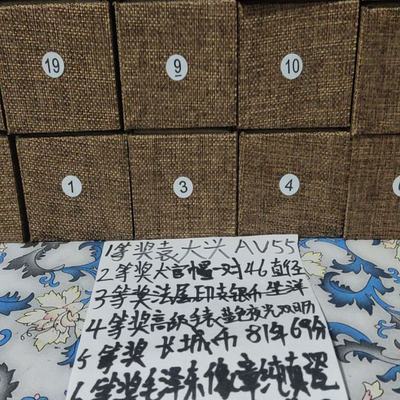 19 9 10
1 3 4
1等奖袁大头AU55
2等奖大官帽一对46直径
3等奖法属印支银币坐洋
4等奖高 手表蓝色夜光双日历
5等奖 长城币 81年69分
6等奖毛泽东像章纯真瓷